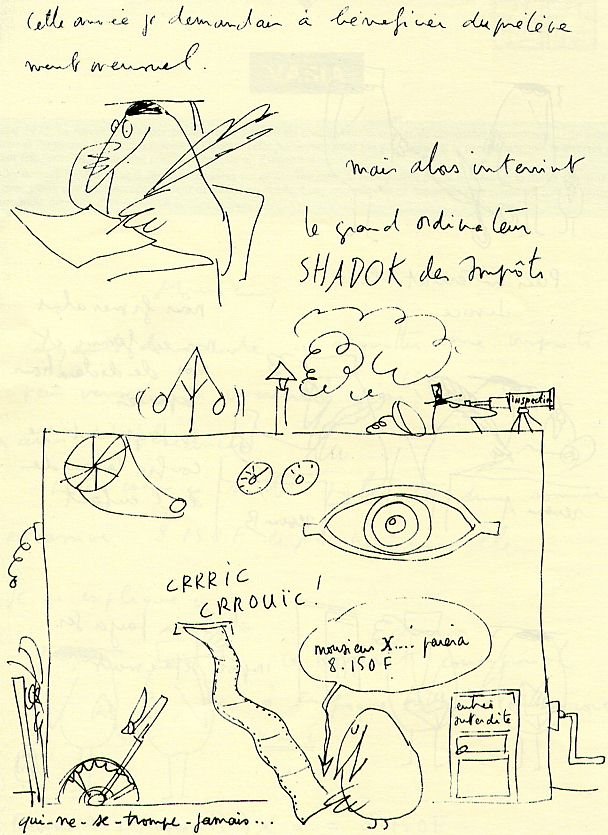 Cette année je demandais à bénéficier du prélève
ment mensuel.
mais alors intervint
le grand ordinateur
SHADOK des Impôts
inspection
CRRRIC
CRROUÏC!
monsieur X.... paiera
8.150 F
entrée
interdite
qui-ne-se-trompe-jamais...